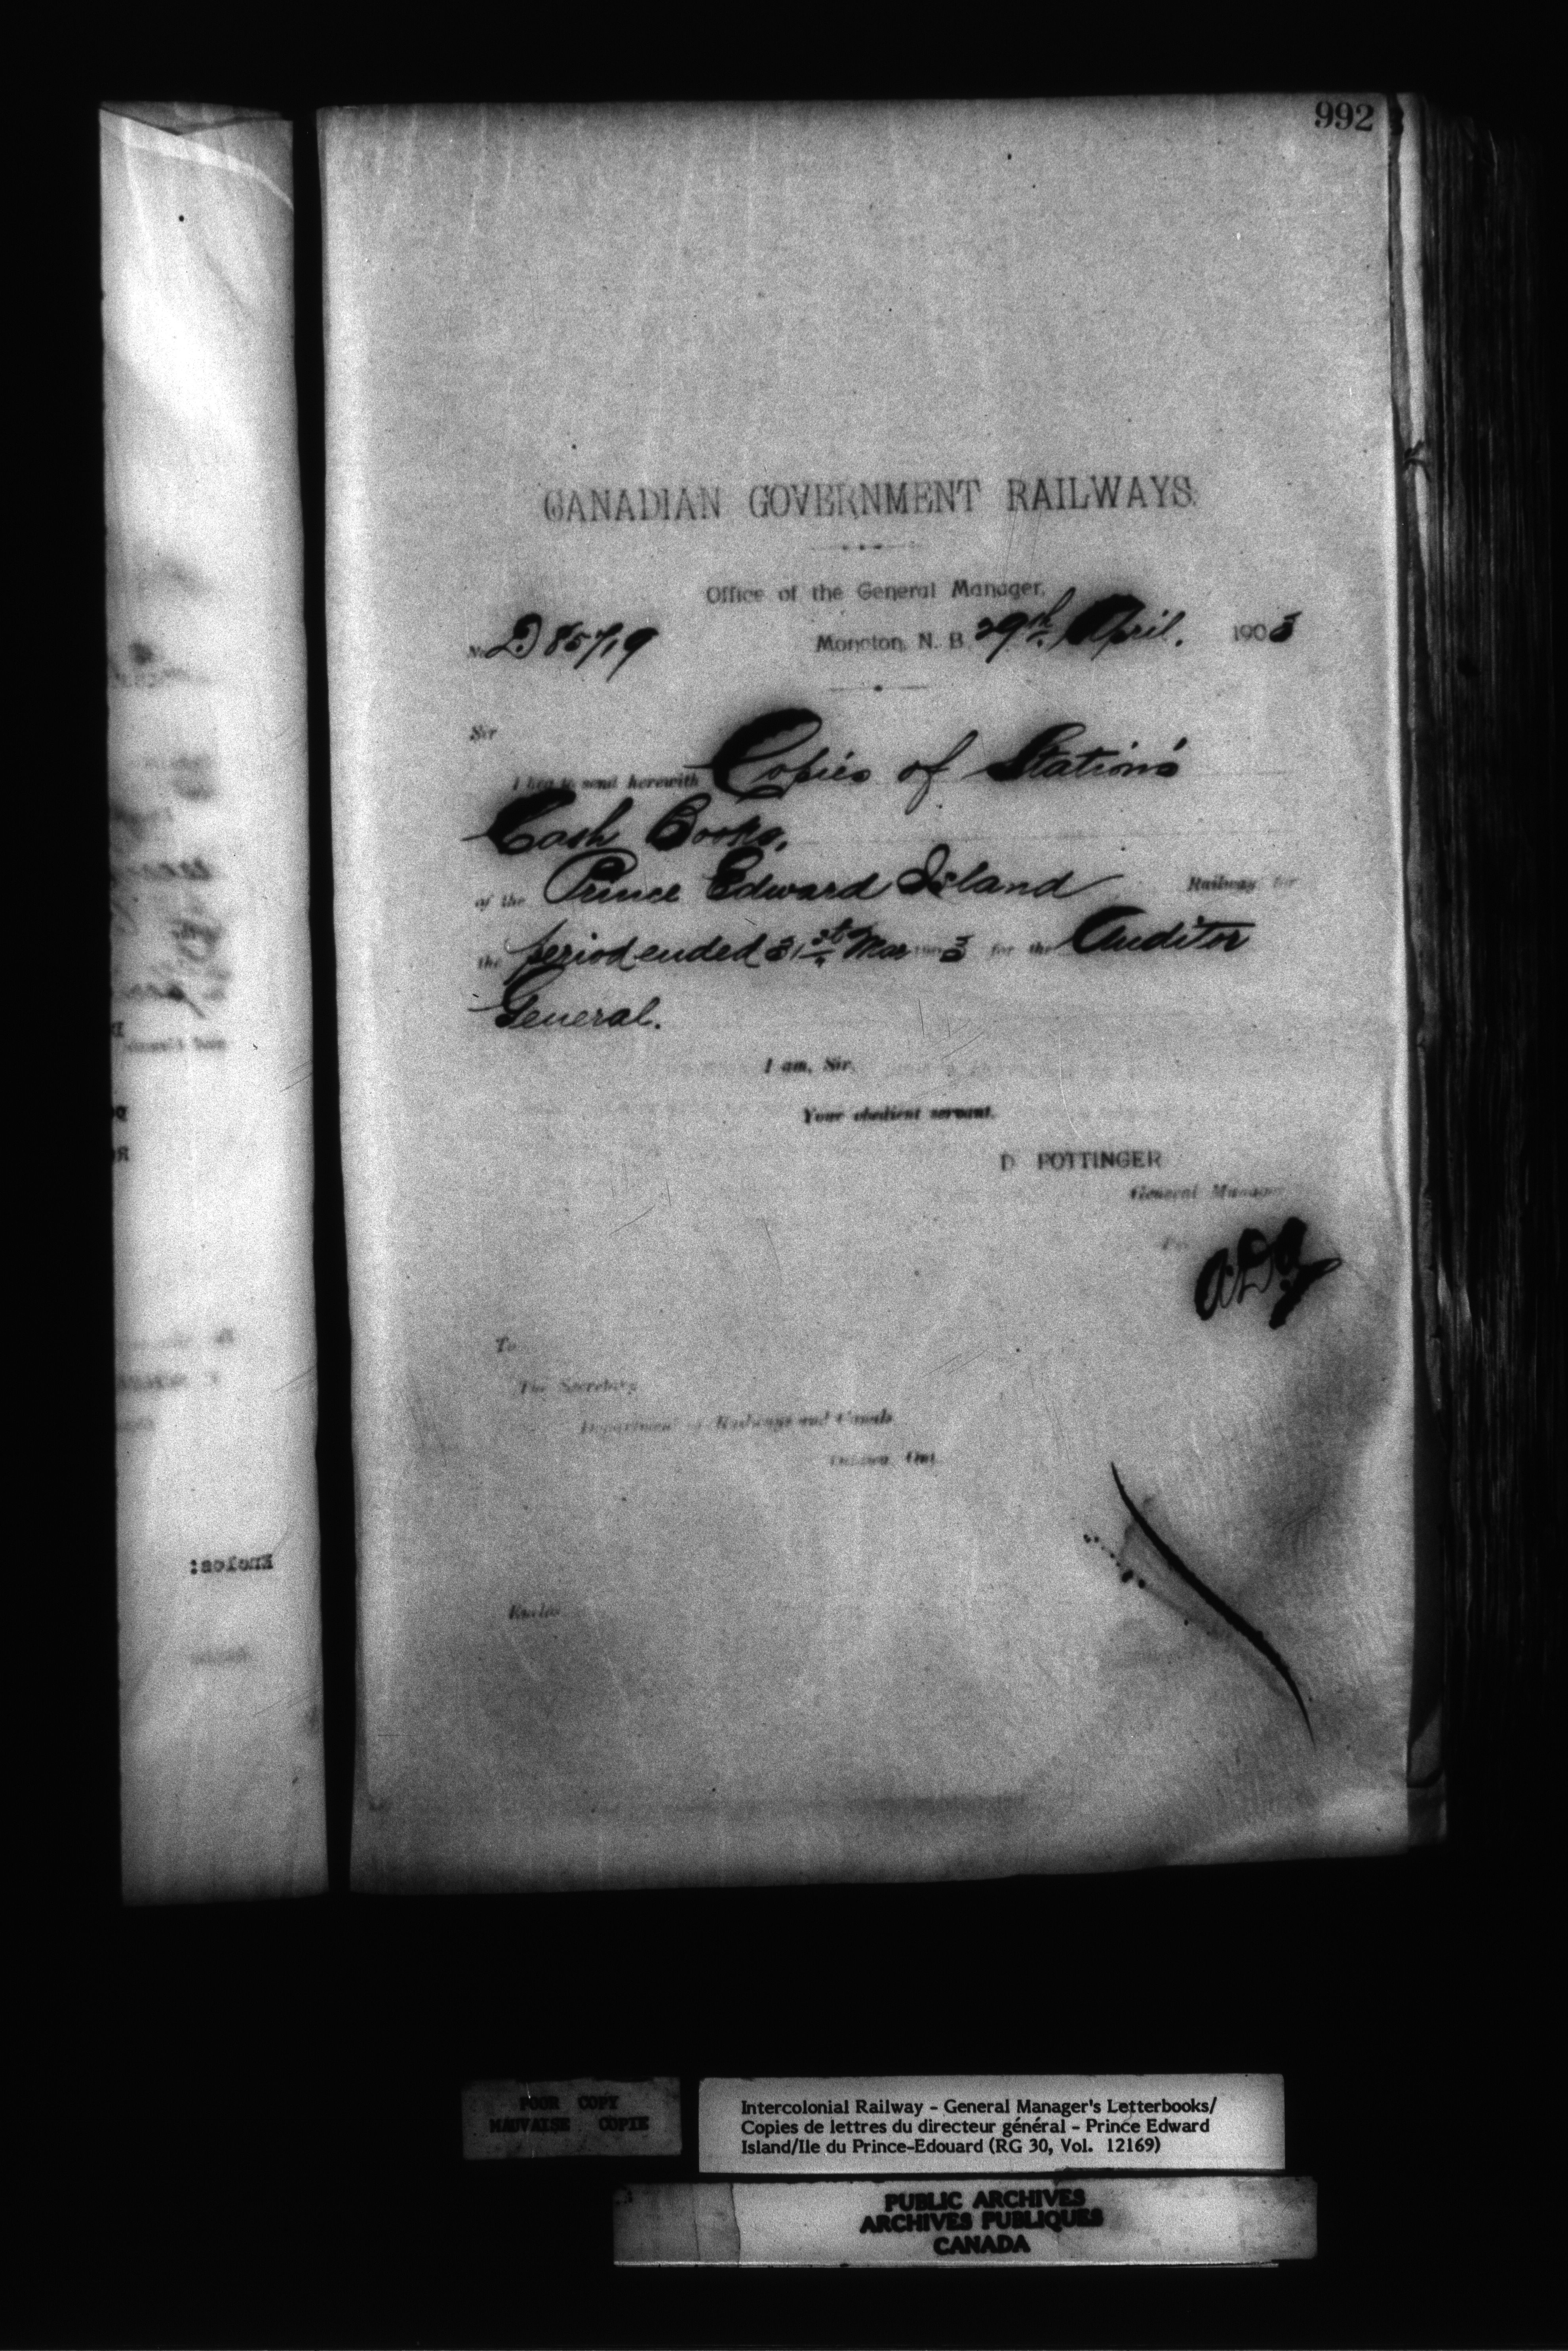 992
CANADIAN GOVERNMENT RAILWAYS.
Office of the General Manager,
No. D 85719 Moncton, N. B. 29th April. 1903
Sir
I beg to send herewith Copies of Station's
Cash Books,
of the Prince Edward Island Railway for
the period ended 31st Mar 1903 for the Auditor
General.
I am, Sir,
Your obedient servant.
D POTTINGER
General Manager
To
The Secretary
Department of Railways and Canals
Ottawa, Ont.
Enclos:
POOR COPY
MAUVAISE COPIE
Intercolonial Railway - General Manager's Letterbooks/
Copies de lettres du directeur général - Prince Edward
Island/Ile du Prince-Edouard (RG 30, Vol. 12169)
PUBLIC ARCHIVES
ARCHIVES PUBLIQUES
CANADA